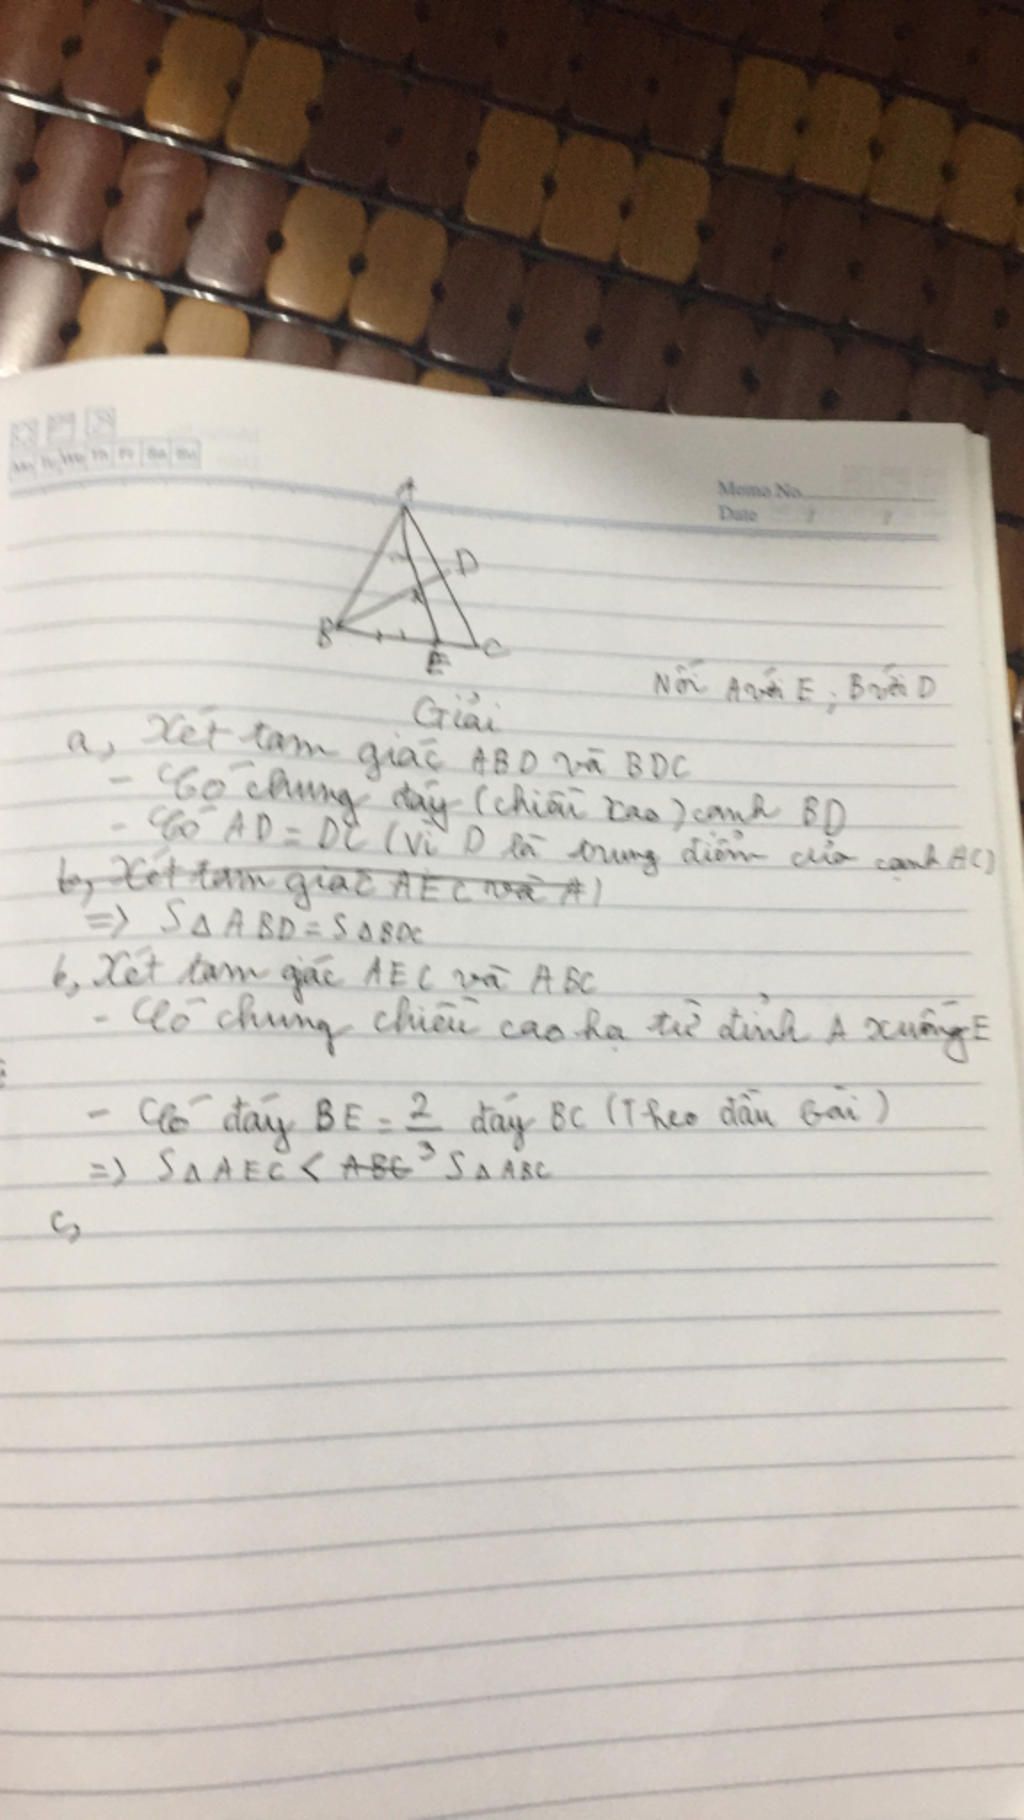 Mo Tu We Th Fr Sa Su
Memo No.
Date / /
A
D
B
E
C
Nối A với E ; B với D
Giải
a, Xét tam giác ABD và BDC
- Có chung đáy (chiều cao) cạnh BD
- Có AD = DC (vì D là trung điểm của cạnh AC)
b, Xét tam giác AEC và A)
=> S∆ABD = S∆BDC
b, Xét tam giác AEC và ABC
- Có chung chiều cao hạ từ đỉnh A xuống E
- Có đáy BE = 2/3 đáy BC (Theo đầu bài)
=> S∆AEC < ABC S∆ABC
c,